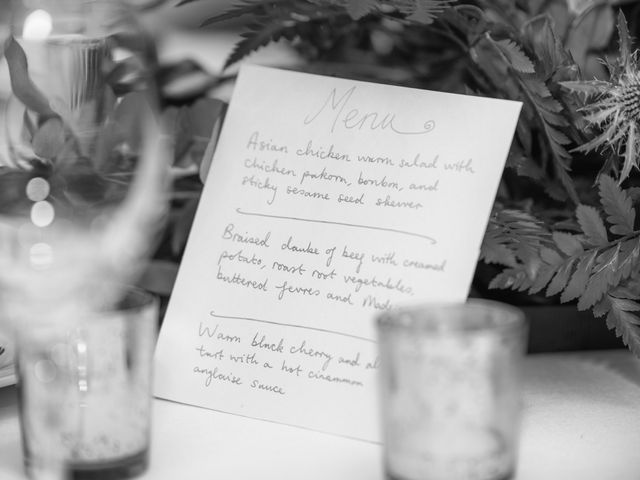 Menu
Asian chicken warm salad with
chicken pakora, bonbon, and
sticky sesame seed skewer
Braised daube of beef with creamed
potato, roast root vegetables,
buttered fevres and
Warm black cherry and
tart with a hot cinammon
anglaise sauce